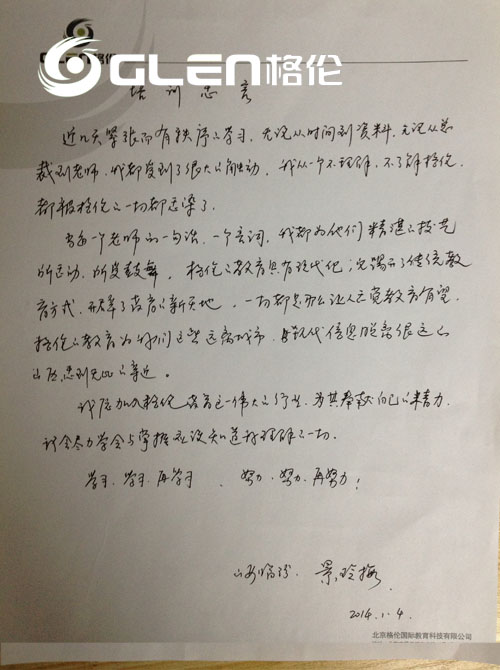 GLEN格伦
GLEN格伦
培训感言
近几天紧张而有秩序的学习，无论从时间到资料，无论从总
裁到老师，我都受到了很大的触动，我从一个不理解，不了解格伦，
都被格伦的一切都感染了。
当每一个老师的一句话，一个音词，我都为他们精湛的技艺
所感动，所受鼓舞，格伦的教育具有现代化，完善了传统教
育方式，开辟了教育的新天地，一切都是那么让人感觉教育有望，
格伦的教育为我们这些远离城市，与现代信息脱离很远的
山区，感到无比的亲近。
我愿加入格伦教育这一伟大的行业，为其奉献自己的精力，
我会尽力学会与掌握应该知道和理解的一切。
学习、学习、再学习、努力、努力、再努力！
山西临汾 景玲梅
2014.1.4
北京格伦国际教育科技有限公司